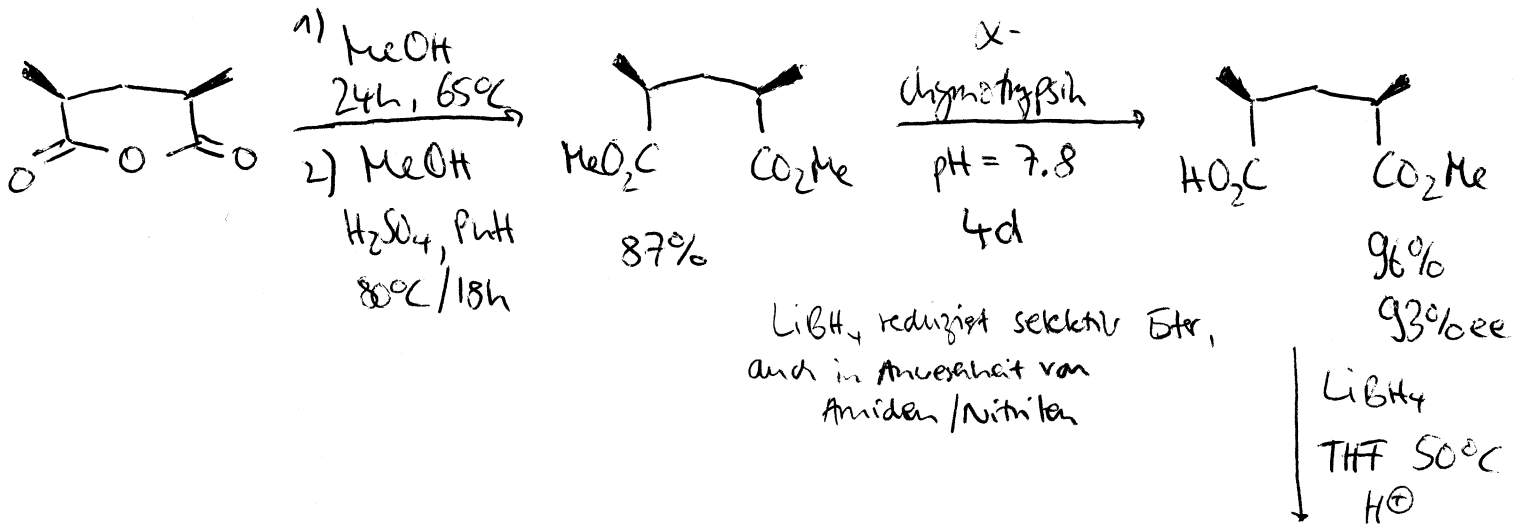 1) MeOH
24h, 65°C
2) MeOH
H₂SO₄, PhH
80°C/18h
O
O
O
MeO₂C
CO₂Me
87%
α-
chymotrypsin
pH = 7.8
4d
HO₂C
CO₂Me
96%
93%ee
LiBH₄ reduziert selektiv Ester,
auch in Anwesenheit von
Amiden/Nitrilen
LiBH₄
THF 50°C
H⊕